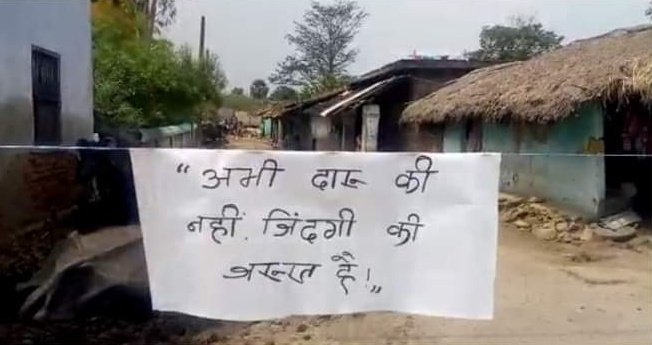 “अभी दारू की
नहीं, जिंदगी की
जरूरत है!„